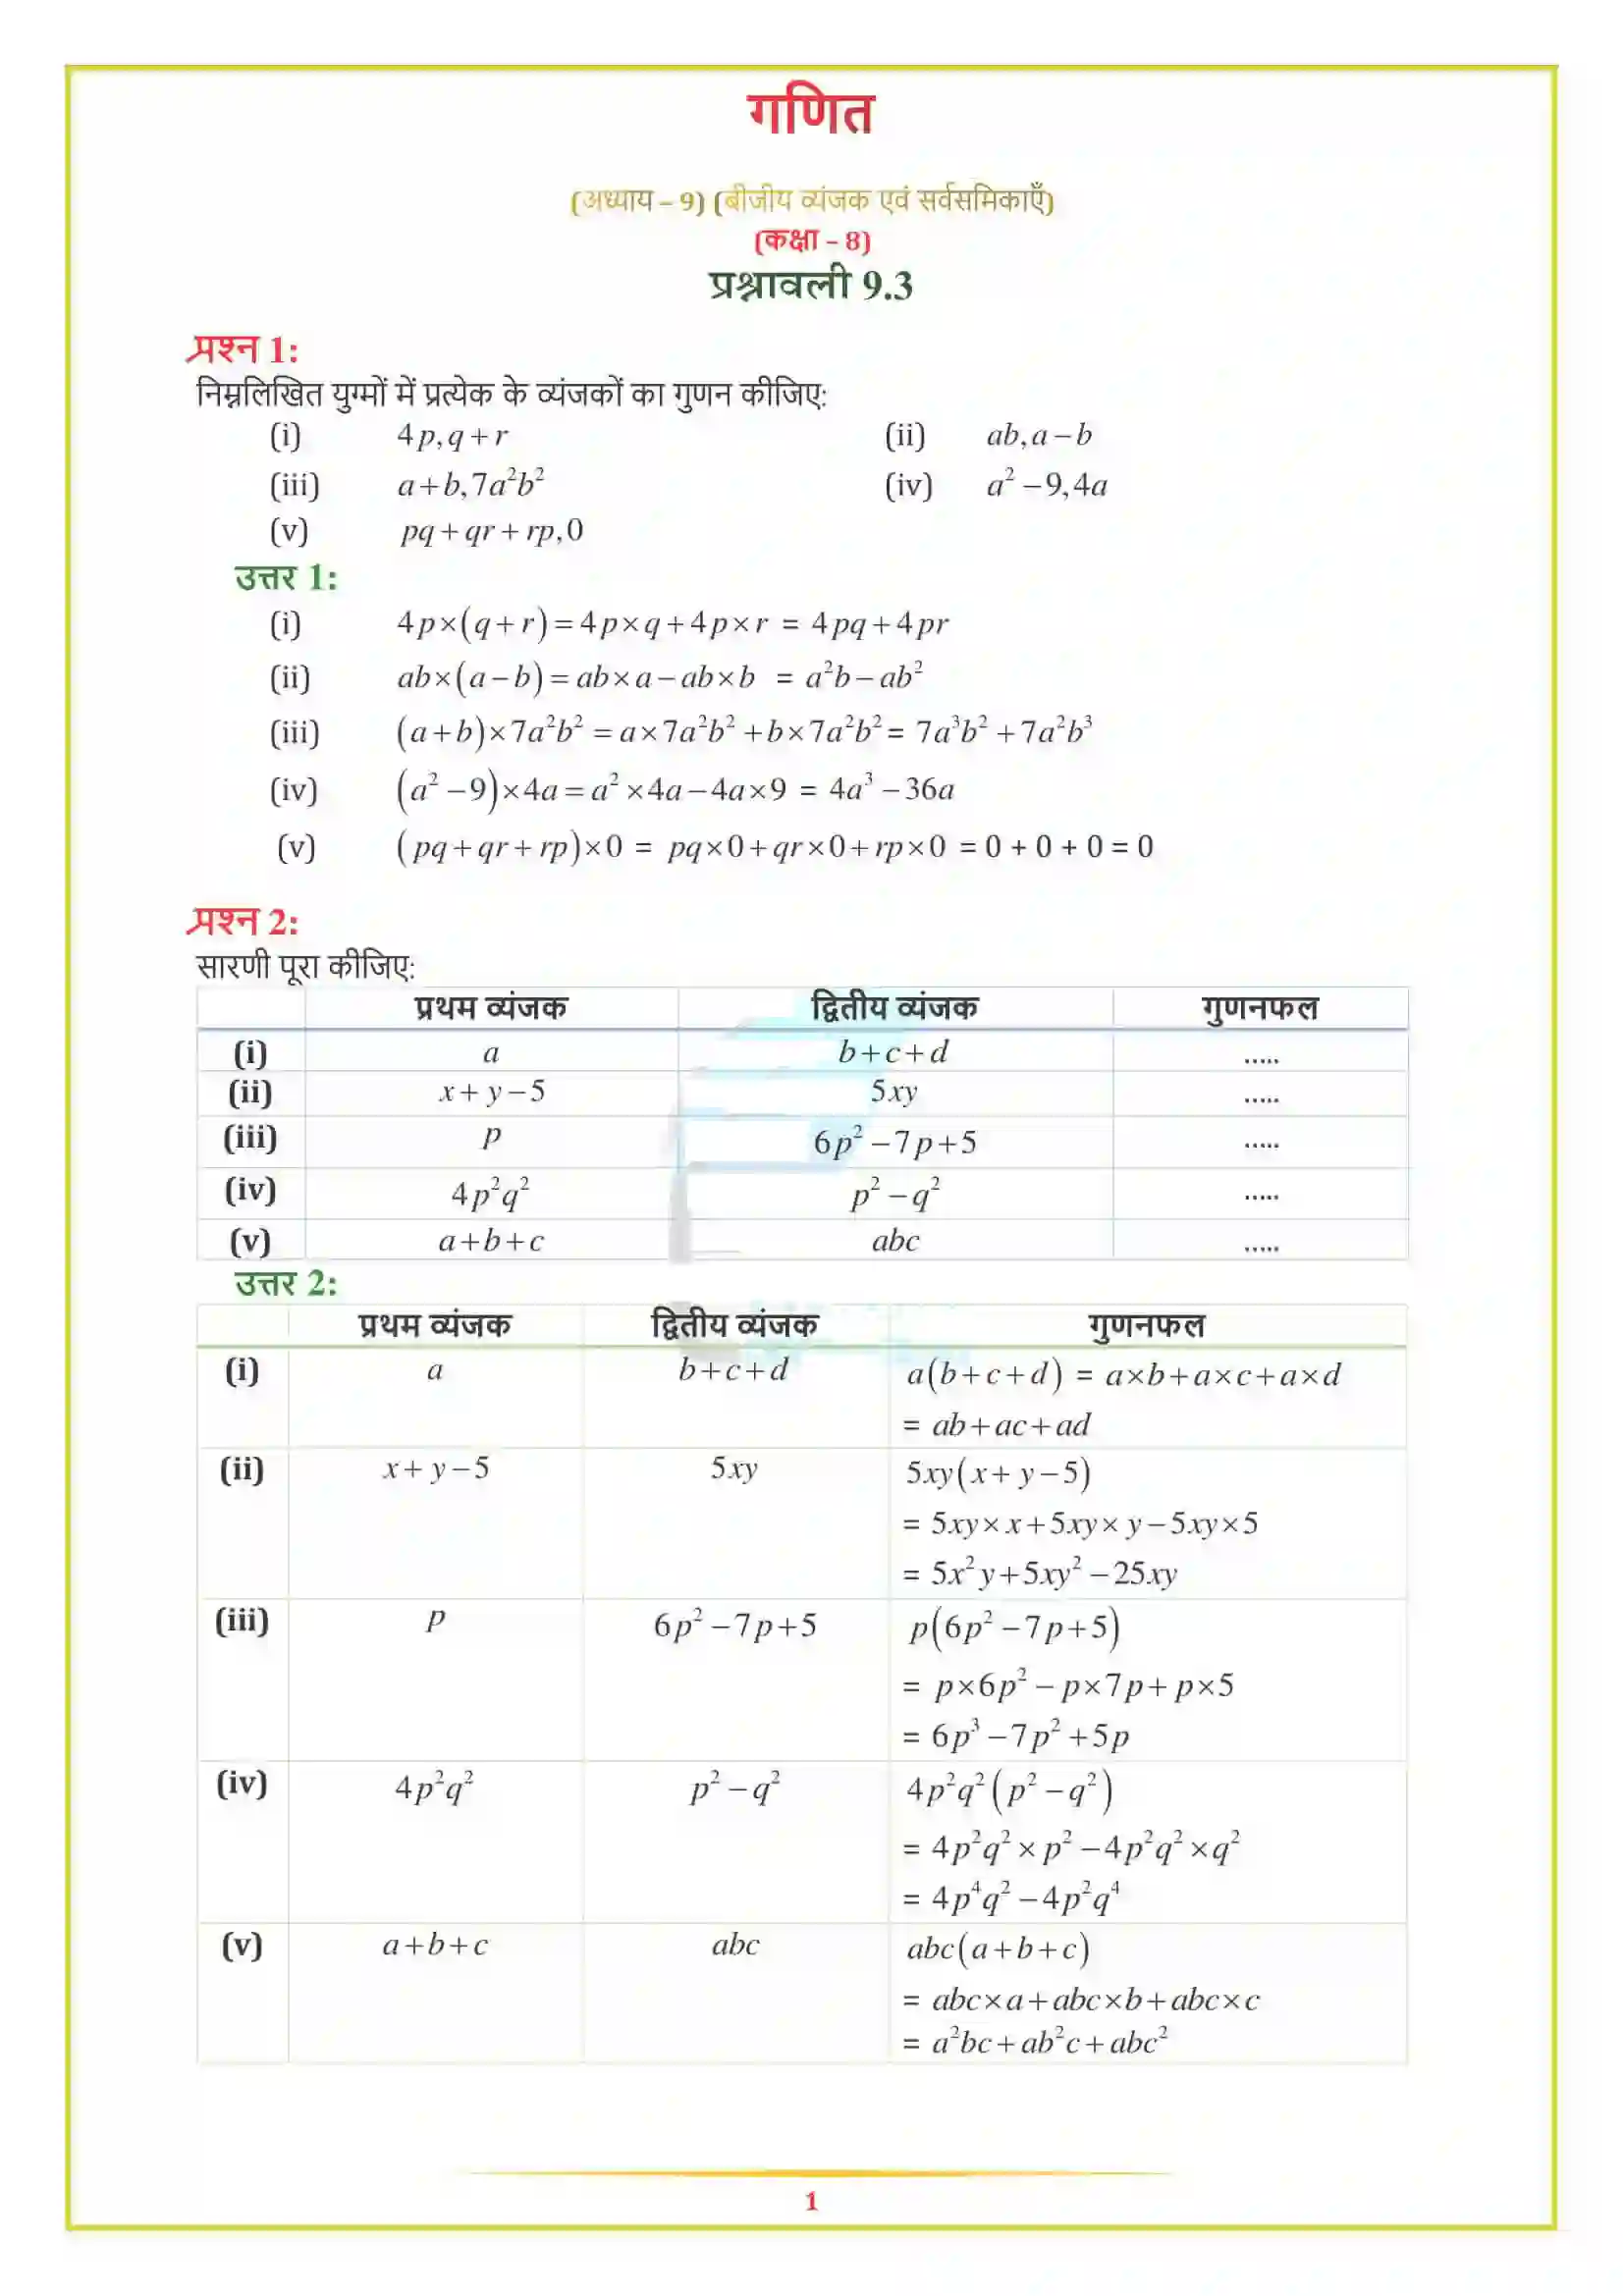 गणित
(अध्याय – 9) (बीजीय व्यंजक एवं सर्वसमिकाएँ)
(कक्षा – 8)
प्रश्नावली 9.3
प्रश्न 1:
निम्नलिखित युग्मों में प्रत्येक के व्यंजकों का गुणन कीजिए:
(i) 4p, q + r (ii) ab, a − b
(iii) a + b, 7a²b² (iv) a² − 9, 4a
(v) pq + qr + rp, 0
उत्तर 1:
(i) 4p×(q + r) = 4p×q + 4p×r = 4pq + 4pr
(ii) ab×(a − b) = ab×a − ab×b = a²b − ab²
(iii) (a + b)×7a²b² = a×7a²b² + b×7a²b² = 7a³b² + 7a²b³
(iv) (a² − 9)×4a = a²×4a − 4a×9 = 4a³ − 36a
(v) (pq + qr + rp)×0 = pq×0 + qr×0 + rp×0 = 0 + 0 + 0 = 0
प्रश्न 2:
सारणी पूरा कीजिए:
प्रथम व्यंजक द्वितीय व्यंजक गुणनफल
(i) a b + c + d .....
(ii) x + y − 5 5xy .....
(iii) p 6p² − 7p + 5 .....
(iv) 4p²q² p² − q² .....
(v) a + b + c abc .....
उत्तर 2:
प्रथम व्यंजक द्वितीय व्यंजक गुणनफल
(i) a b + c + d a(b + c + d) = a×b + a×c + a×d
= ab + ac + ad
(ii) x + y − 5 5xy 5xy(x + y − 5)
= 5xy×x + 5xy×y − 5xy×5
= 5x²y + 5xy² − 25xy
(iii) p 6p² − 7p + 5 p(6p² − 7p + 5)
= p×6p² − p×7p + p×5
= 6p³ − 7p² + 5p
(iv) 4p²q² p² − q² 4p²q²(p² − q²)
= 4p²q²×p² − 4p²q²×q²
= 4p⁴q² − 4p²q⁴
(v) a + b + c abc abc(a + b + c)
= abc×a + abc×b + abc×c
= a²bc + ab²c + abc²
1